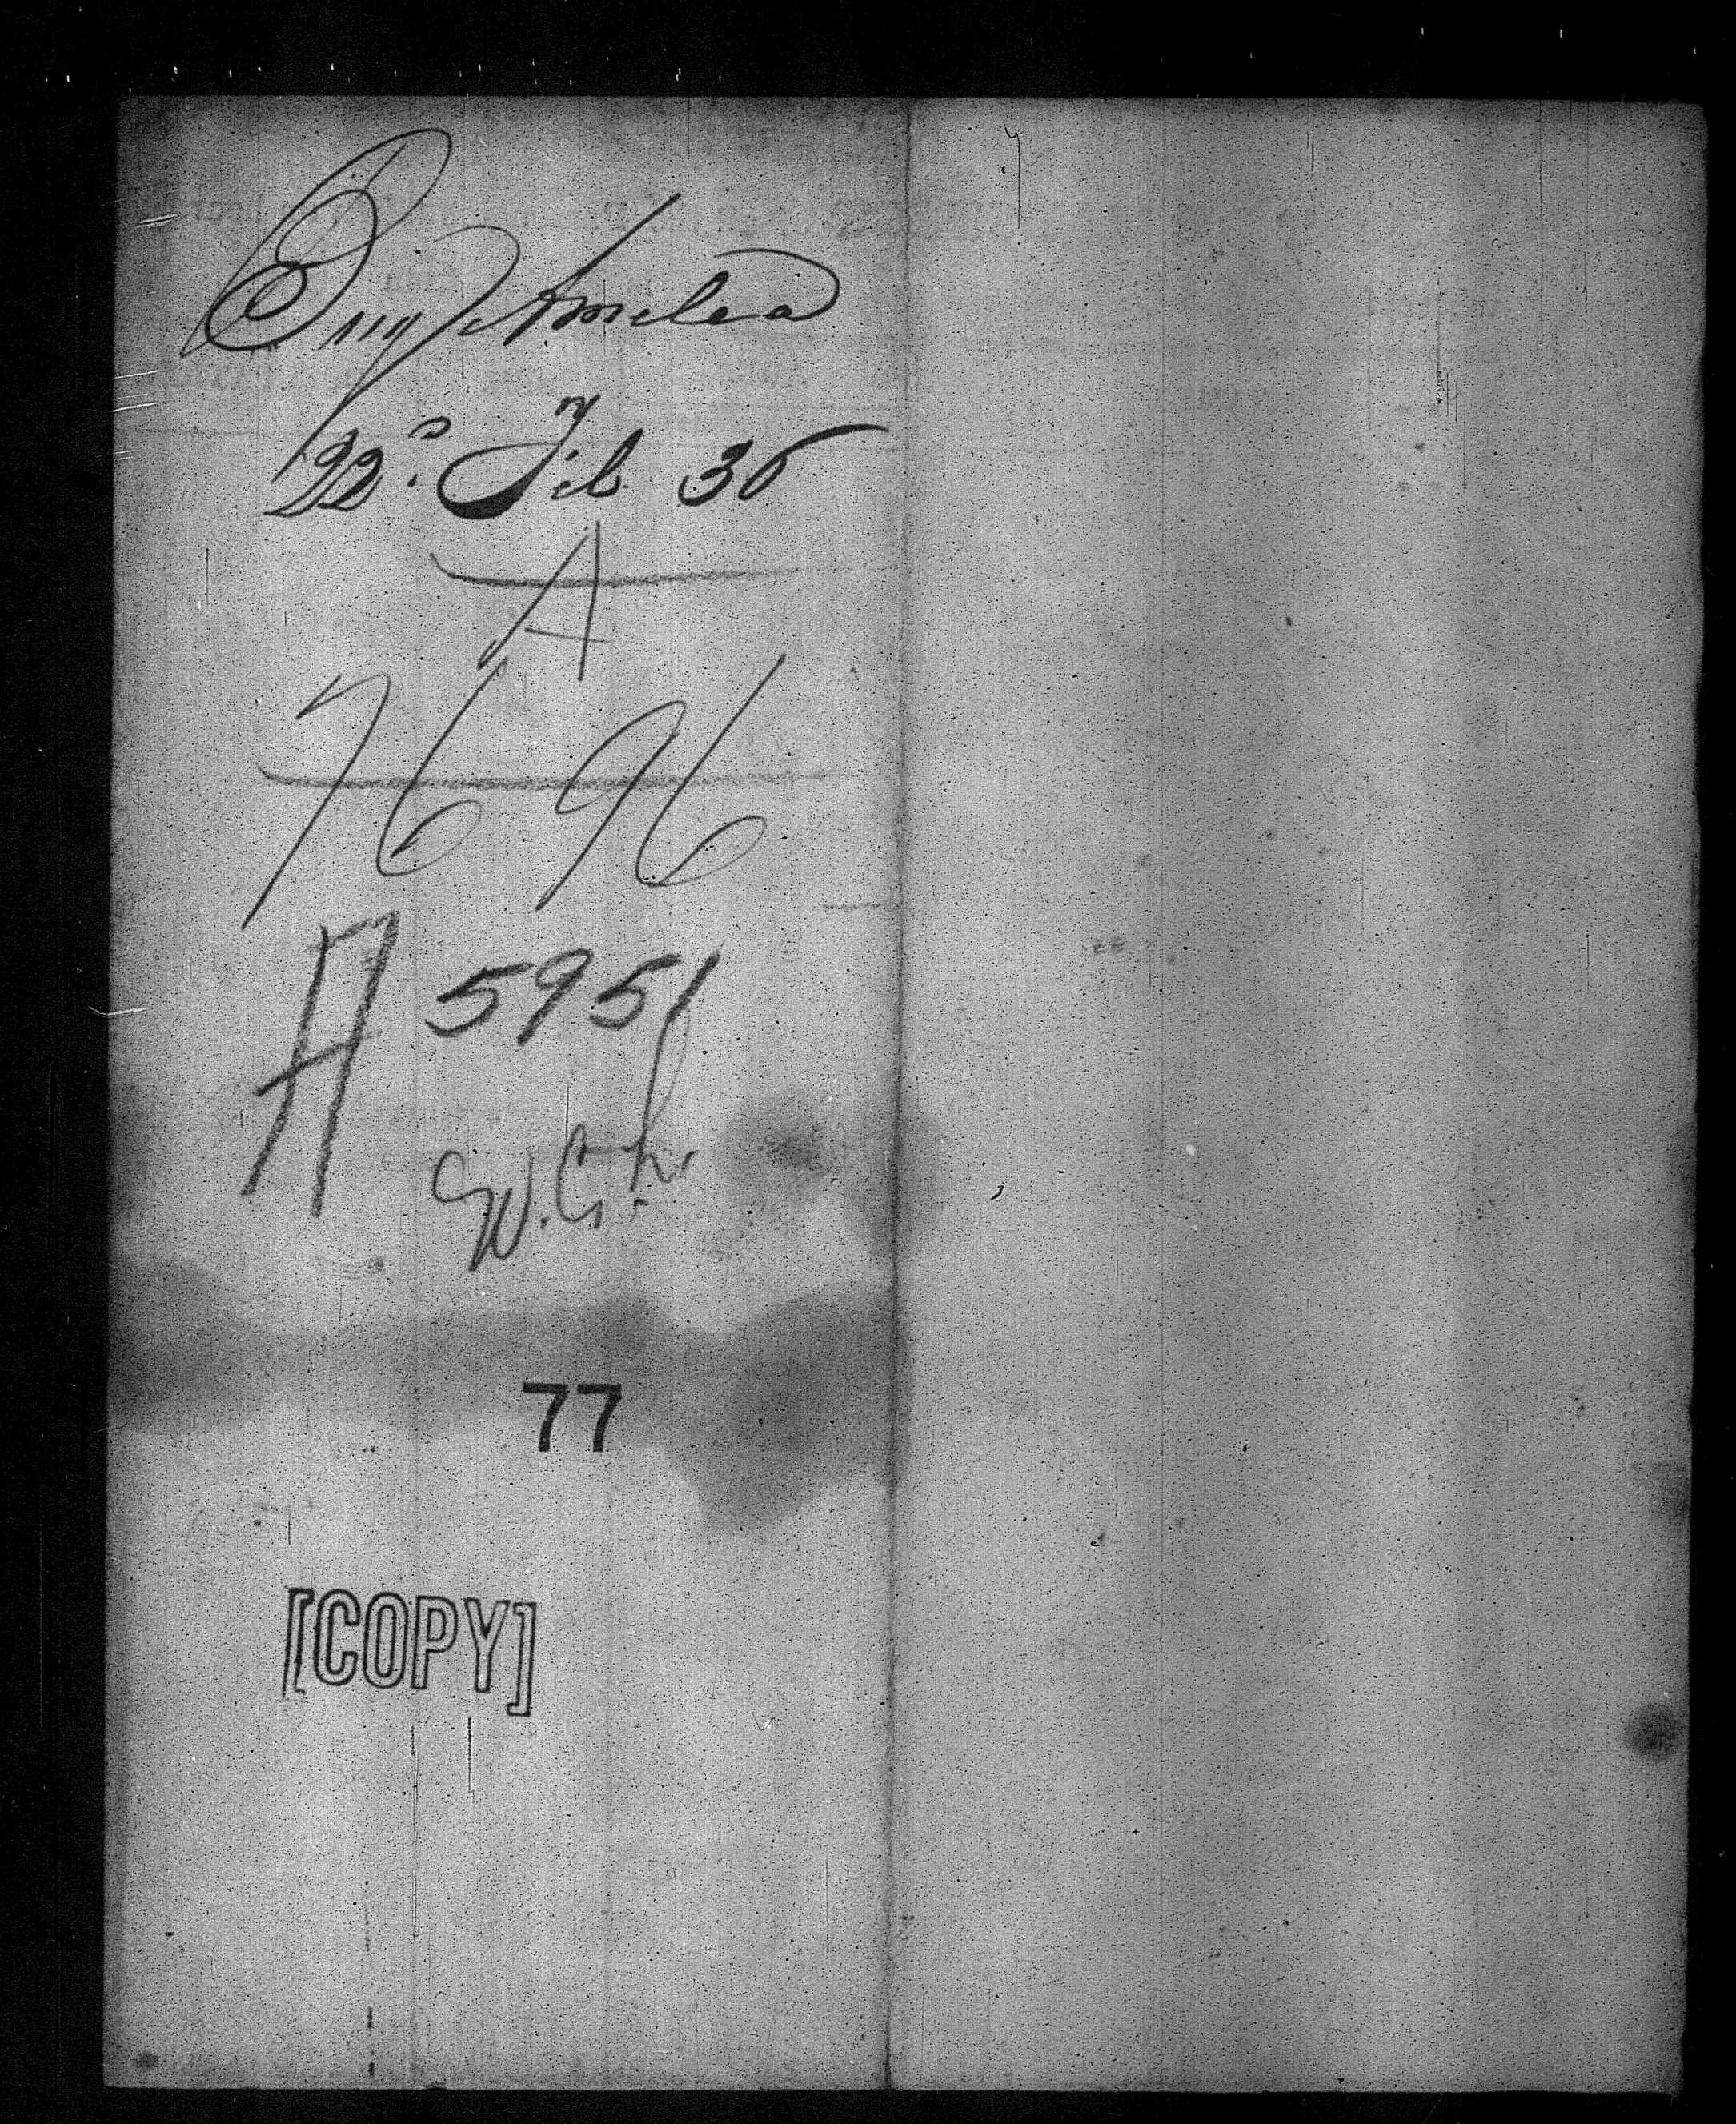 Brig Amelea
22d Feb 36
A
76 96
A 5951
W.G.h.
77
[COPY]